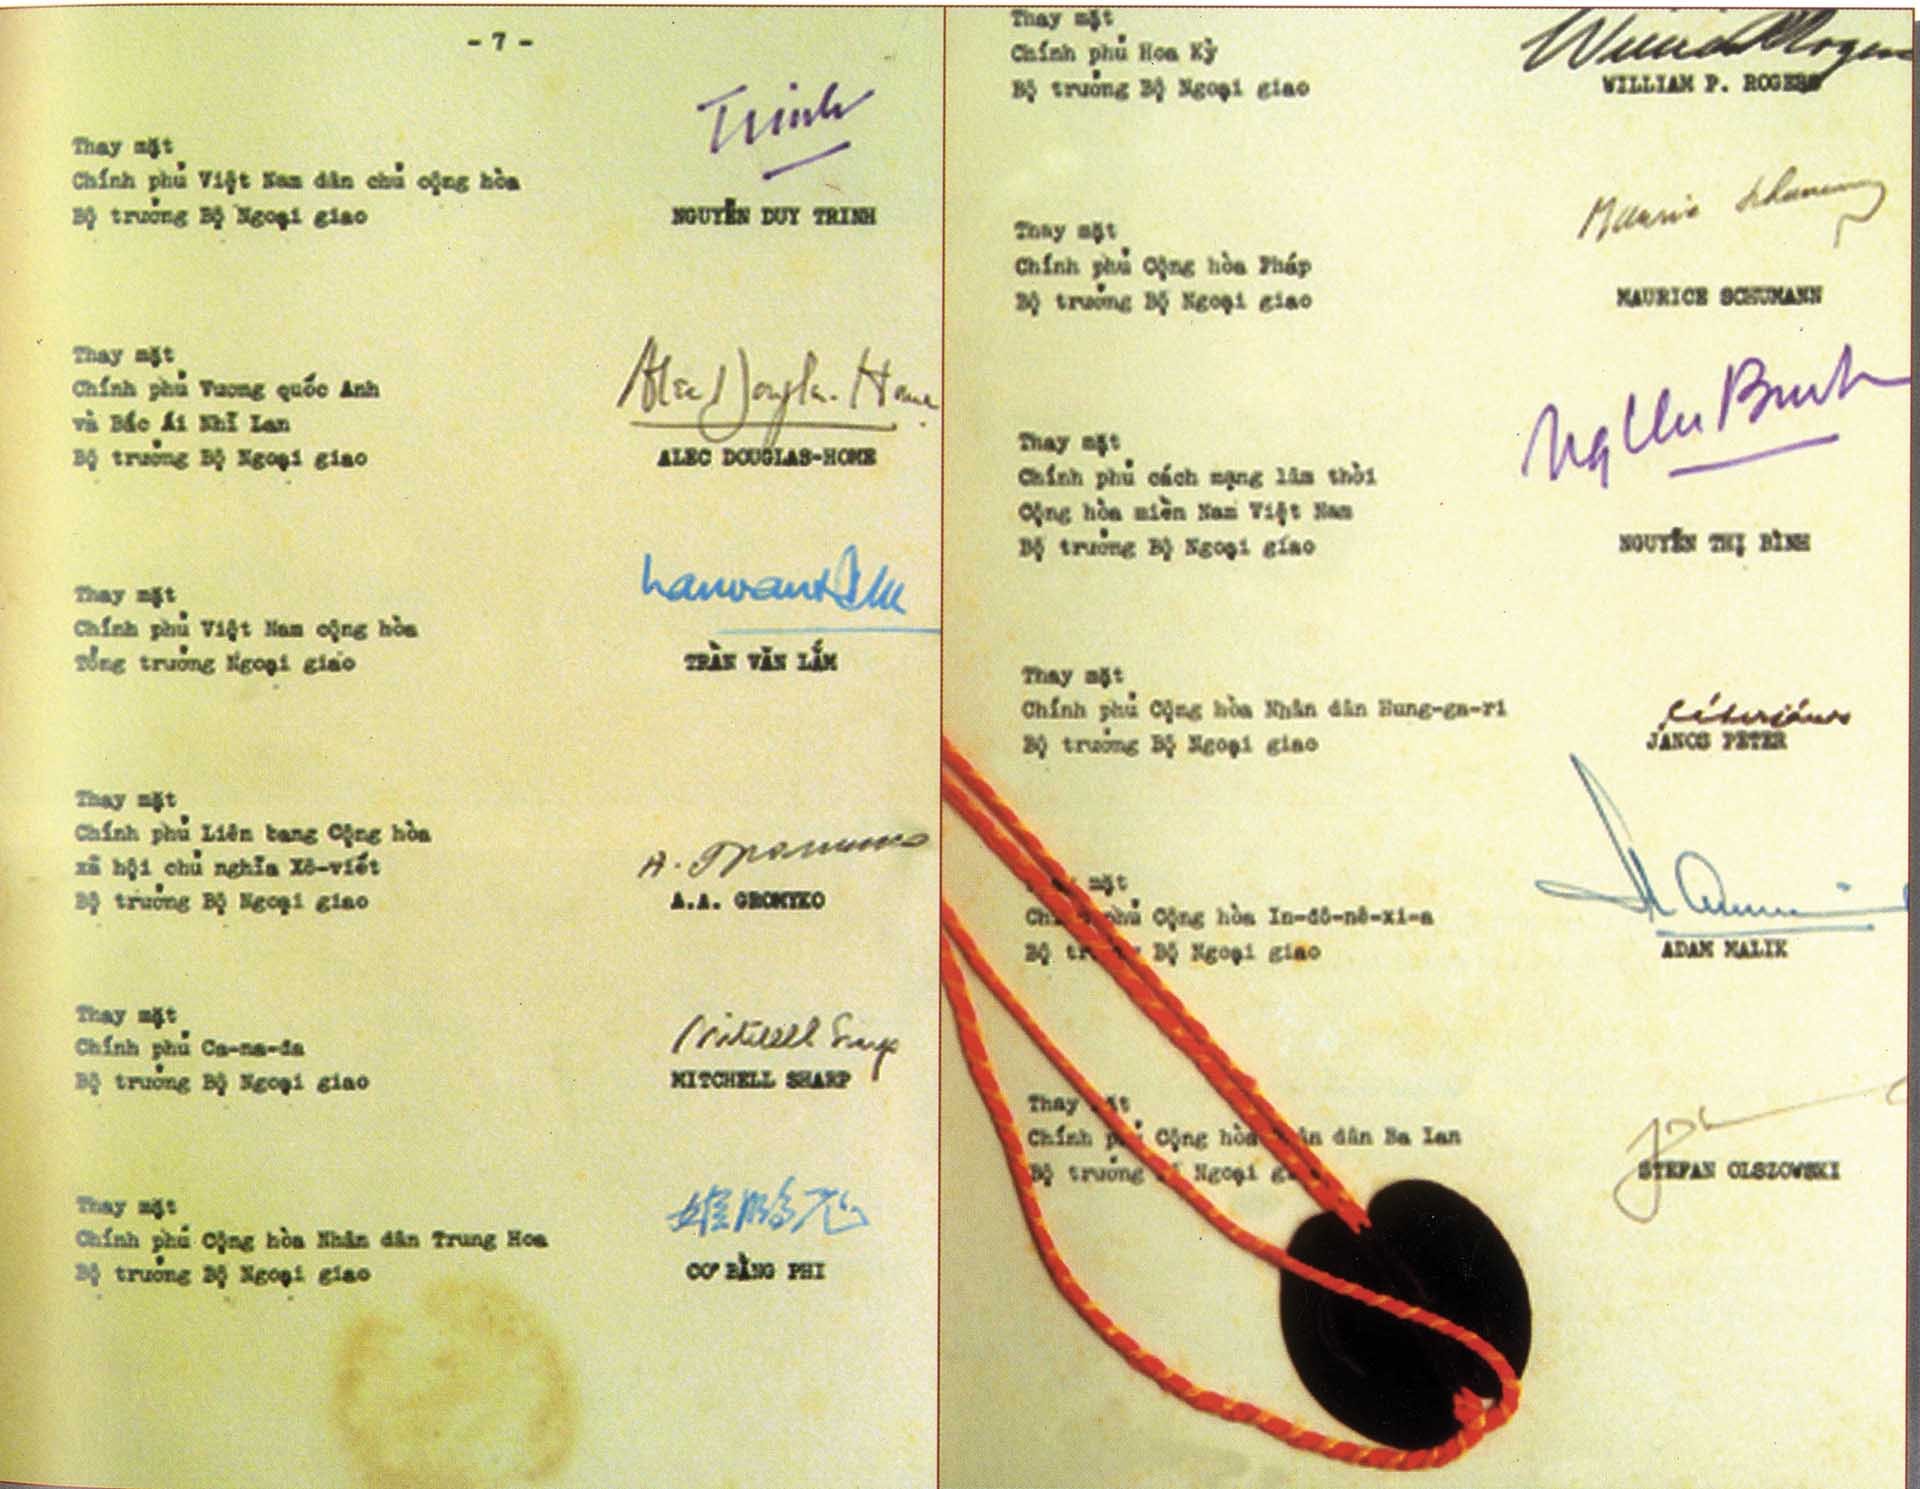 - 7 -
Trinh
Thay mặt
Chính phủ Việt Nam dân chủ cộng hòa
Bộ trưởng Bộ Ngoại giao
NGUYỄN DUY TRINH
Alec Douglas-Home
Thay mặt
Chính phủ Vương quốc Anh
và Bắc Ái Nhĩ Lan
Bộ trưởng Bộ Ngoại giao
ALEC DOUGLAS-HOME
Thay mặt
Chính phủ Việt Nam cộng hòa
Tổng trưởng Ngoại giao
TRẦN VĂN LẮM
Thay mặt
Chính phủ Liên bang Cộng hòa
xã hội chủ nghĩa Xô-viết
Bộ trưởng Bộ Ngoại giao
А. Громыко
A.A. GROMYKO
Thay mặt
Chính phủ Ca-na-da
Bộ trưởng Bộ Ngoại giao
Mitchell Sharp
MITCHELL SHARP
Thay mặt
Chính phủ Cộng hòa Nhân dân Trung Hoa
Bộ trưởng Bộ Ngoại giao
姬鹏飞
CƠ BẰNG PHI
Thay mặt
Chính phủ Hoa Kỳ
Bộ trưởng Bộ Ngoại giao
William P. Rogers
WILLIAM P. ROGERS
Thay mặt
Chính phủ Cộng hòa Pháp
Bộ trưởng Bộ Ngoại giao
Maurice Schumann
MAURICE SCHUMANN
Thay mặt
Chính phủ cách mạng lâm thời
Cộng hòa miền Nam Việt Nam
Bộ trưởng Bộ Ngoại giao
NGUYỄN THỊ BÌNH
Thay mặt
Chính phủ Cộng hòa Nhân dân Hung-ga-ri
Bộ trưởng Bộ Ngoại giao
Péter János
JÁNOS PÉTER
mặt
phủ Cộng hòa In-đô-nê-xi-a
Bộ Bộ Ngoại giao
ADAM MALIK
Thay mặt
Chính Cộng hòa dân Ba Lan
Bộ trưởng Ngoại
STEFAN OLSZOWSKI